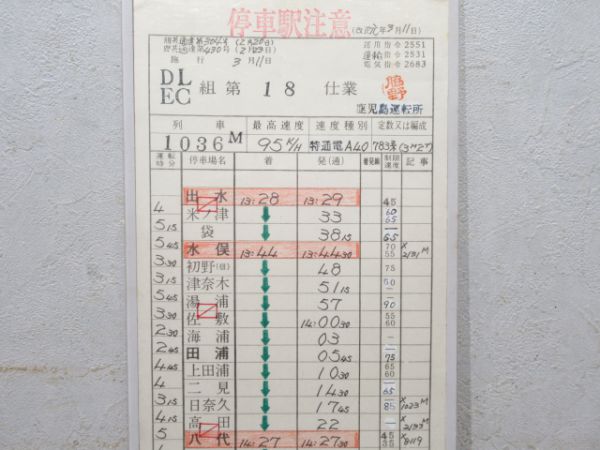 停車駅注意
(改元年3月11日)
施行 3月11日
運用指令2551
運輸指令2531
電気指令2683
DL
EC 組 第 18 仕業
鹿児島運転所
列車 最高速度 速度種別 定数又は編成
1036M 95K/H 特通電A40 783系(3M2T)
運転時分 停車場名 着 発(通) 着発線 制限速度 記事
出水 13:28 13:29 45
4 米ノ津 33 60 65
5 15 袋 38 15 65
5 45 水俣 13:44 13:44 30 70 55 2131M
3 30 初野(信) 48 75
3 15 津奈木 51 15
5 45 湯浦 57 90
3 30 佐敷 14:00 30 55 60
2 30 海浦 03
2 45 田浦 05 45 75
4 45 上田浦 10 30 65 60
4 二見 14 30 65
3 15 日奈久 17 45 85 1023M
4 15 高田 22 2133M
5 八代 14:27 14:27 30 45 35 8119